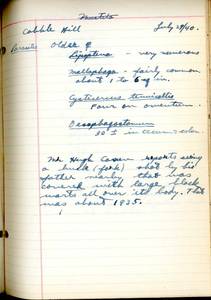 Cobble Hill July 29/40.
Parasites Older ♀
Lipoptena - very numerous
Mallophaga - fairly common
about 1 to 6 sq in.
Cysticercus tenuicollis
Four on omentum.
Oesophagostomum
10 ± in cecum & colon.
Mr Hugh Casson reports seeing
a buck (fork) shot by his
father nearby that was
covered with large black
warts all over its body. This
was about 1935.